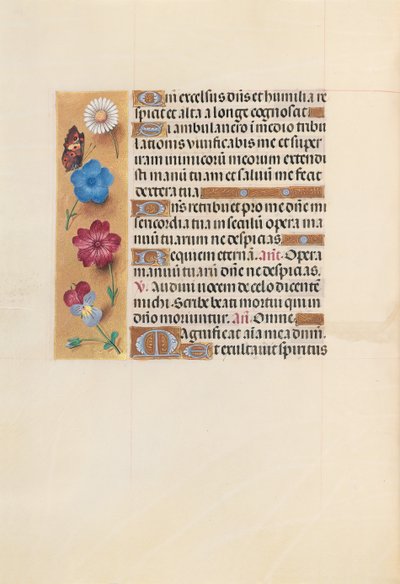 Qm̄ excelsus dn̄s et humilia re
spicit et alta a longe cognoscit
Si ambulavero ī medio tribu
lationis vivificabis me et super
iram inimicorū meorum extendi
sti manū tuam et salvū me fecit
dextera tua
Dn̄s retribuet pro me dn̄e mi
sericordia tua in seculū opera ma
nuū tuarum ne despicias.
Requiem eternā. an̄t. Opera
manuū tuarū dn̄e ne despicias.
v. Audivi vocem de celo dicentē
michi. Scribe beati mortui qui in
dn̄o moriuntur. an̄. Omne
Magnificat aīa mea dn̄m.
Et exultavit spiritus